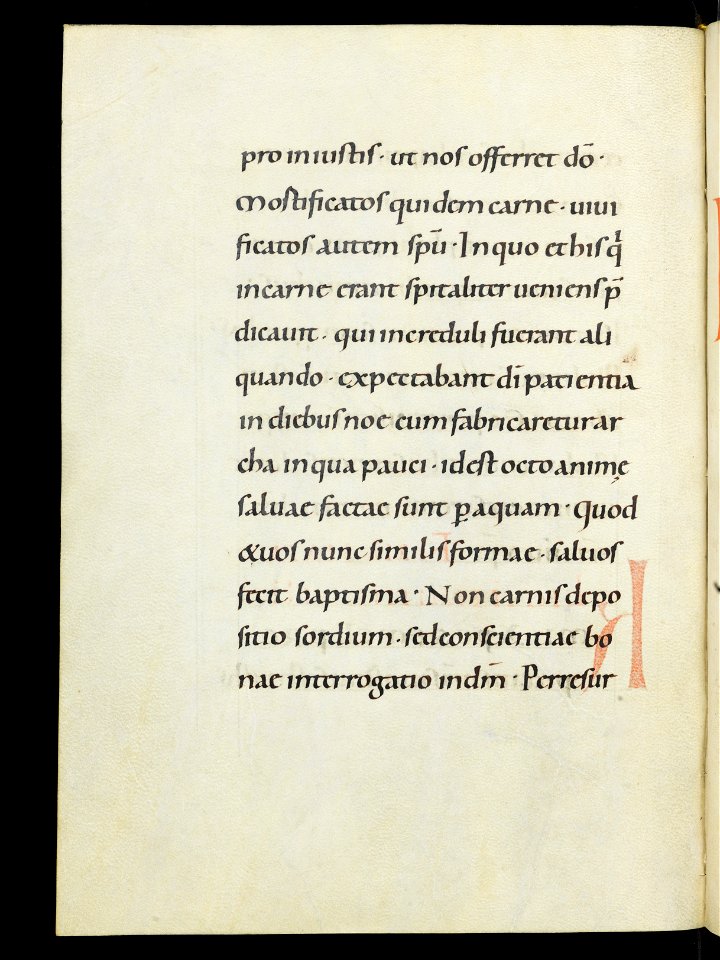 pro iniustis · ut nos offerret dō ·
Mortificatos quidem carne · uiui
ficatos autem spū · In quo et his qⁱ
in carne erant spitaliter ueniens p̄
dicauit · qui increduli fuerant ali
quando · expectabant dī patientia
in diebus noe cum fabricaretur ar
cha in qua pauci · id est octo animę
saluae factae sunt ꝑ aquam · Quod
& uos nunc similis formae · saluos
fecit baptisma · Non carnis depo
sitio sordium · sed conscientiae bo
nae interrogatio in dm̄ · Per resur